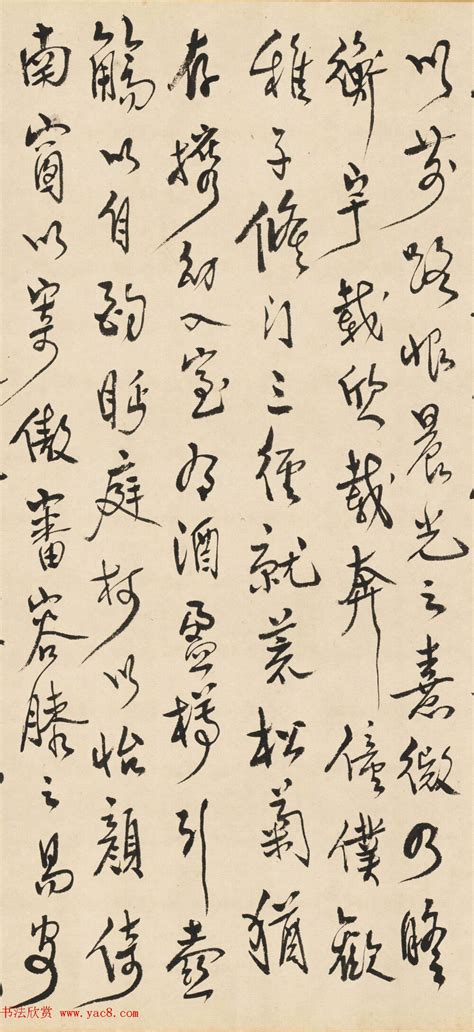 以前路恨晨光之熹微乃瞻
衡宇載欣載奔僮僕歡
稚子候門三徑就荒松菊猶
存攜幼入室有酒盈樽引壺
觴以自酌眄庭柯以怡顏倚
南窗以寄傲審容膝之易安
书法欣赏 www.yac8.com